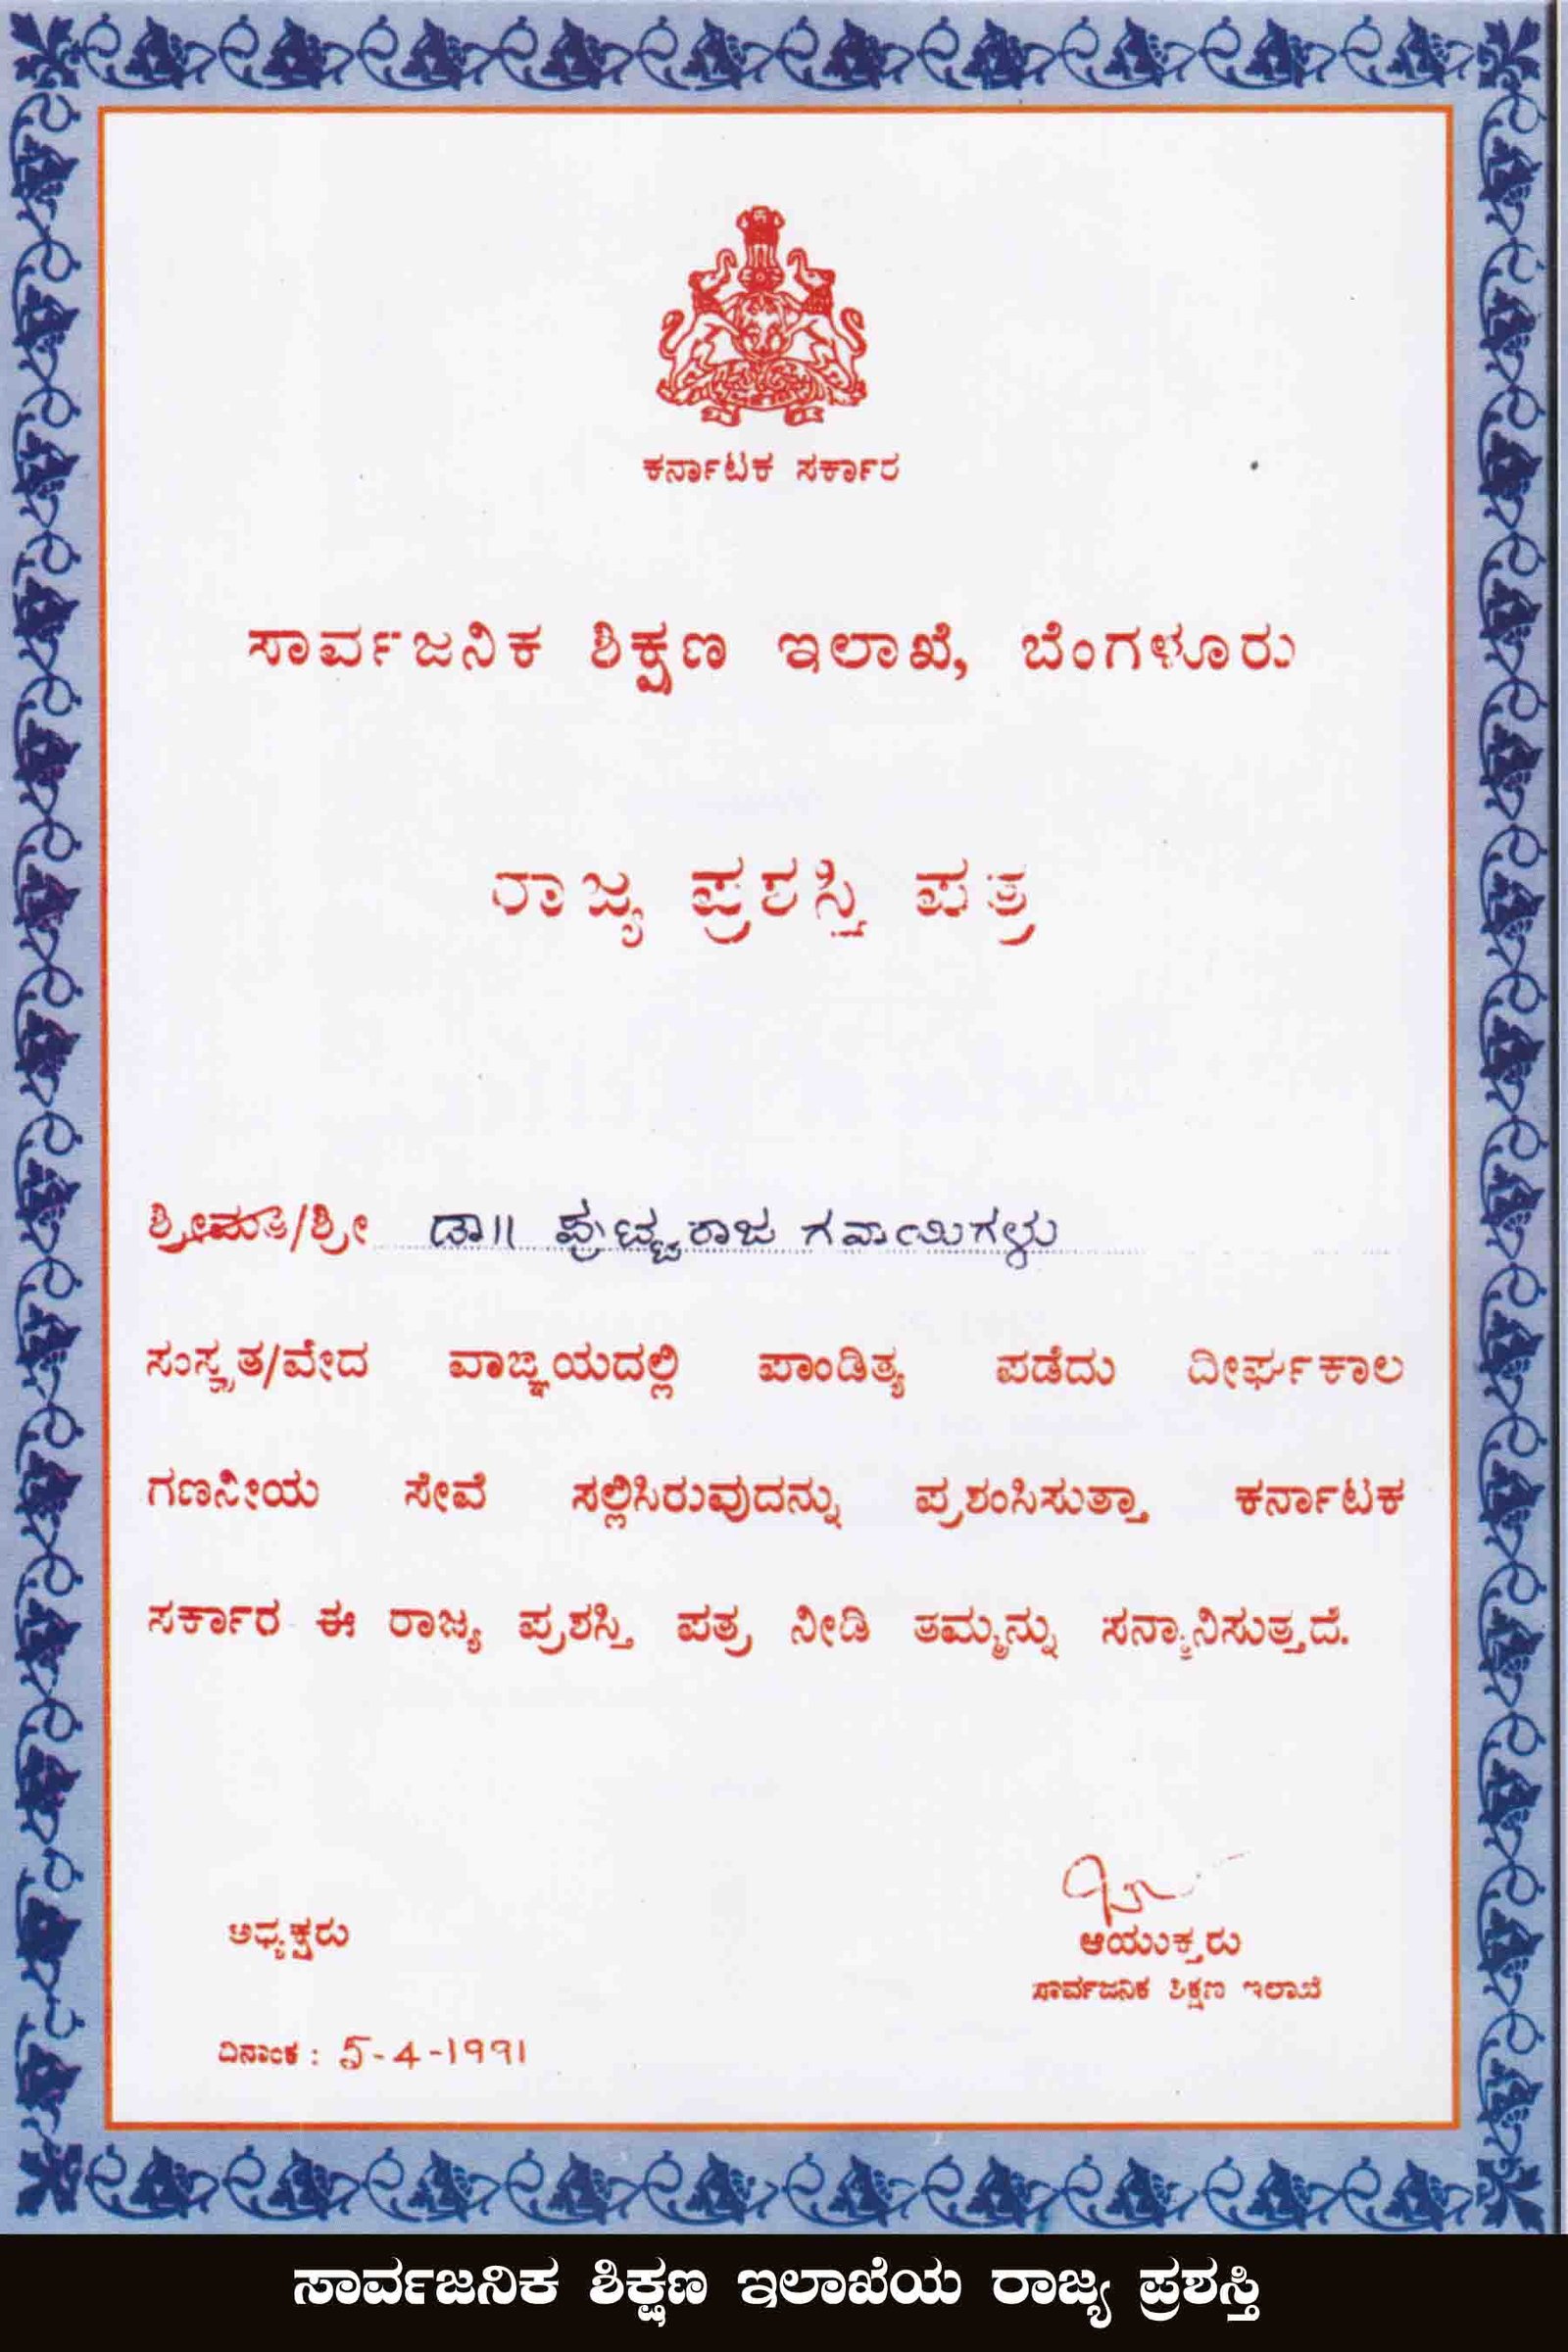 ಕರ್ನಾಟಕ ಸರ್ಕಾರ
ಸಾರ್ವಜನಿಕ ಶಿಕ್ಷಣ ಇಲಾಖೆ, ಬೆಂಗಳೂರು
ರಾಜ್ಯ ಪ್ರಶಸ್ತಿ ಪತ್ರ
ಶ್ರೀಮತಿ/ಶ್ರೀ ಡಾ|| ಪುಟ್ಟರಾಜ ಗವಾಯಿಗಳು
ಸಂಸ್ಕೃತ/ವೇದ ವಾಙ್ಞಯದಲ್ಲಿ ಪಾಂಡಿತ್ಯ ಪಡೆದು ದೀರ್ಘಕಾಲ
ಗಣನೀಯ ಸೇವೆ ಸಲ್ಲಿಸಿರುವುದನ್ನು ಪ್ರಶಂಸಿಸುತ್ತಾ ಕರ್ನಾಟಕ
ಸರ್ಕಾರ ಈ ರಾಜ್ಯ ಪ್ರಶಸ್ತಿ ಪತ್ರ ನೀಡಿ ತಮ್ಮನ್ನು ಸನ್ಮಾನಿಸುತ್ತದೆ.
ಅಧ್ಯಕ್ಷರು
ಆಯುಕ್ತರು
ಸಾರ್ವಜನಿಕ ಶಿಕ್ಷಣ ಇಲಾಖೆ
ದಿನಾಂಕ : 5-4-1991
ಸಾರ್ವಜನಿಕ ಶಿಕ್ಷಣ ಇಲಾಖೆಯ ರಾಜ್ಯ ಪ್ರಶಸ್ತಿ